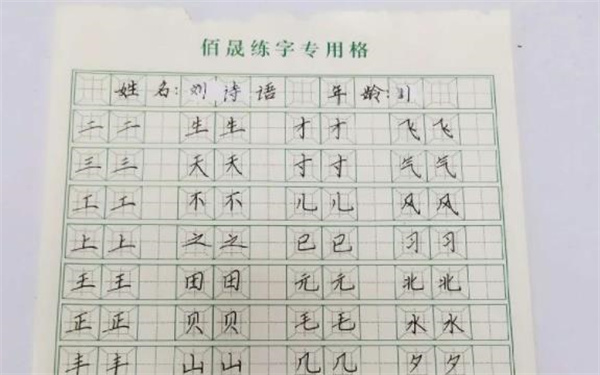 佰晟练字专用格
姓名:刘诗语 年龄:11
二二 生生 才才 飞飞
三三 天天 寸寸 气气
工工 不不 儿儿 风风
上上 之之 已已 习习
王王 田田 元元 北北
正正 贝贝 毛毛 水水
丰丰 山山 几几 夕夕